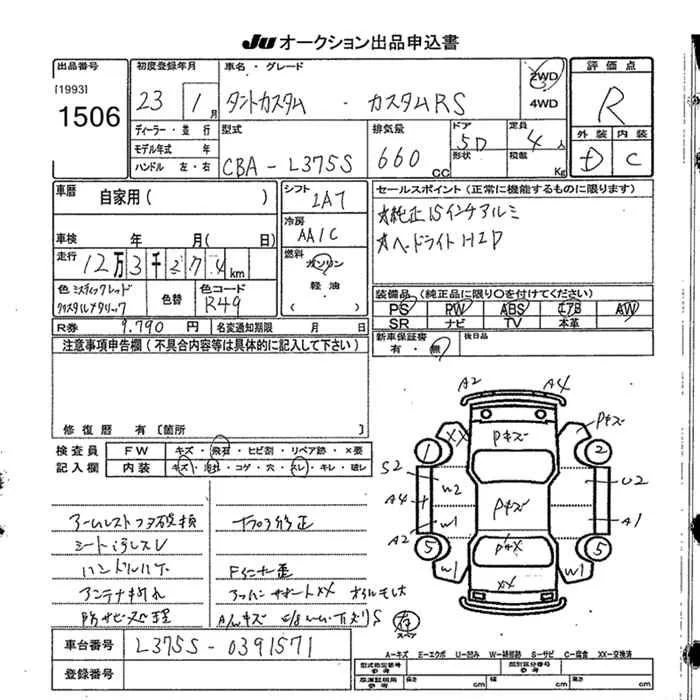 JU オークション出品申込書
出品番号
[1993]
1506
初度登録年月
23 1月
車名・グレード
タントカスタム ・ カスタムRS
2WD
4WD
評価点
R
外装 内装
D C
ディーラー・並行
モデル年式 年
ハンドル 左・右
型式
CBA-L375S
排気量
660 cc
ドア
5D
形状
定員
4人
積載
Kg
車歴
自家用( )
シフト
IA7
セールスポイント(正常に機能するものに限ります)
☆純正15インチアルミ
☆ヘッドライトHID
冷房
AAIC
車検 年 月( 日)
走行
12万3千274km
燃料
ガソリン
・
軽油
( )
色 ミスティックレッド
クリスタルメタリック
色替
色コード
R49
装備品(純正品に限り○を付けてください)
PS PW ABS エアB AW
SR ナビ TV 本革
R券 9.790 円
名変通知期限 月 日
新車保証書
有・無
後日品
注意事項申告欄(不具合内容等は具体的に記入して下さい)
修復歴 有〔箇所 〕
検査員
記入欄
FW キズ・飛石・ヒビ割・リペア跡・×要
内装 キズ・汚れ・コゲ・穴・スレ・キレ・破レ
アームレストフタ破損
シート汚レスレ
ハンドルハゲ
アンテナ折れ
防サビ処理
下回り修正
Fインナー歪
アッパーサポートXX
A/Wキズ
A2 A4
Pキズ
XX
Pキズ
1 2
S2 W2 U2
A4
Pキズ
W1 A1
A2
5 5
PキX
W1 W1
XX
有
スペア
車台番号 L375S-0391571
登録番号
A-キズ E-エクボ U-凹み W-補修跡 S-サビ C-腐食 XX-交換済
型式指定番号
参考
類別区分番号
参考
車庫証明用
参考
長さ cm
幅 cm
高さ cm